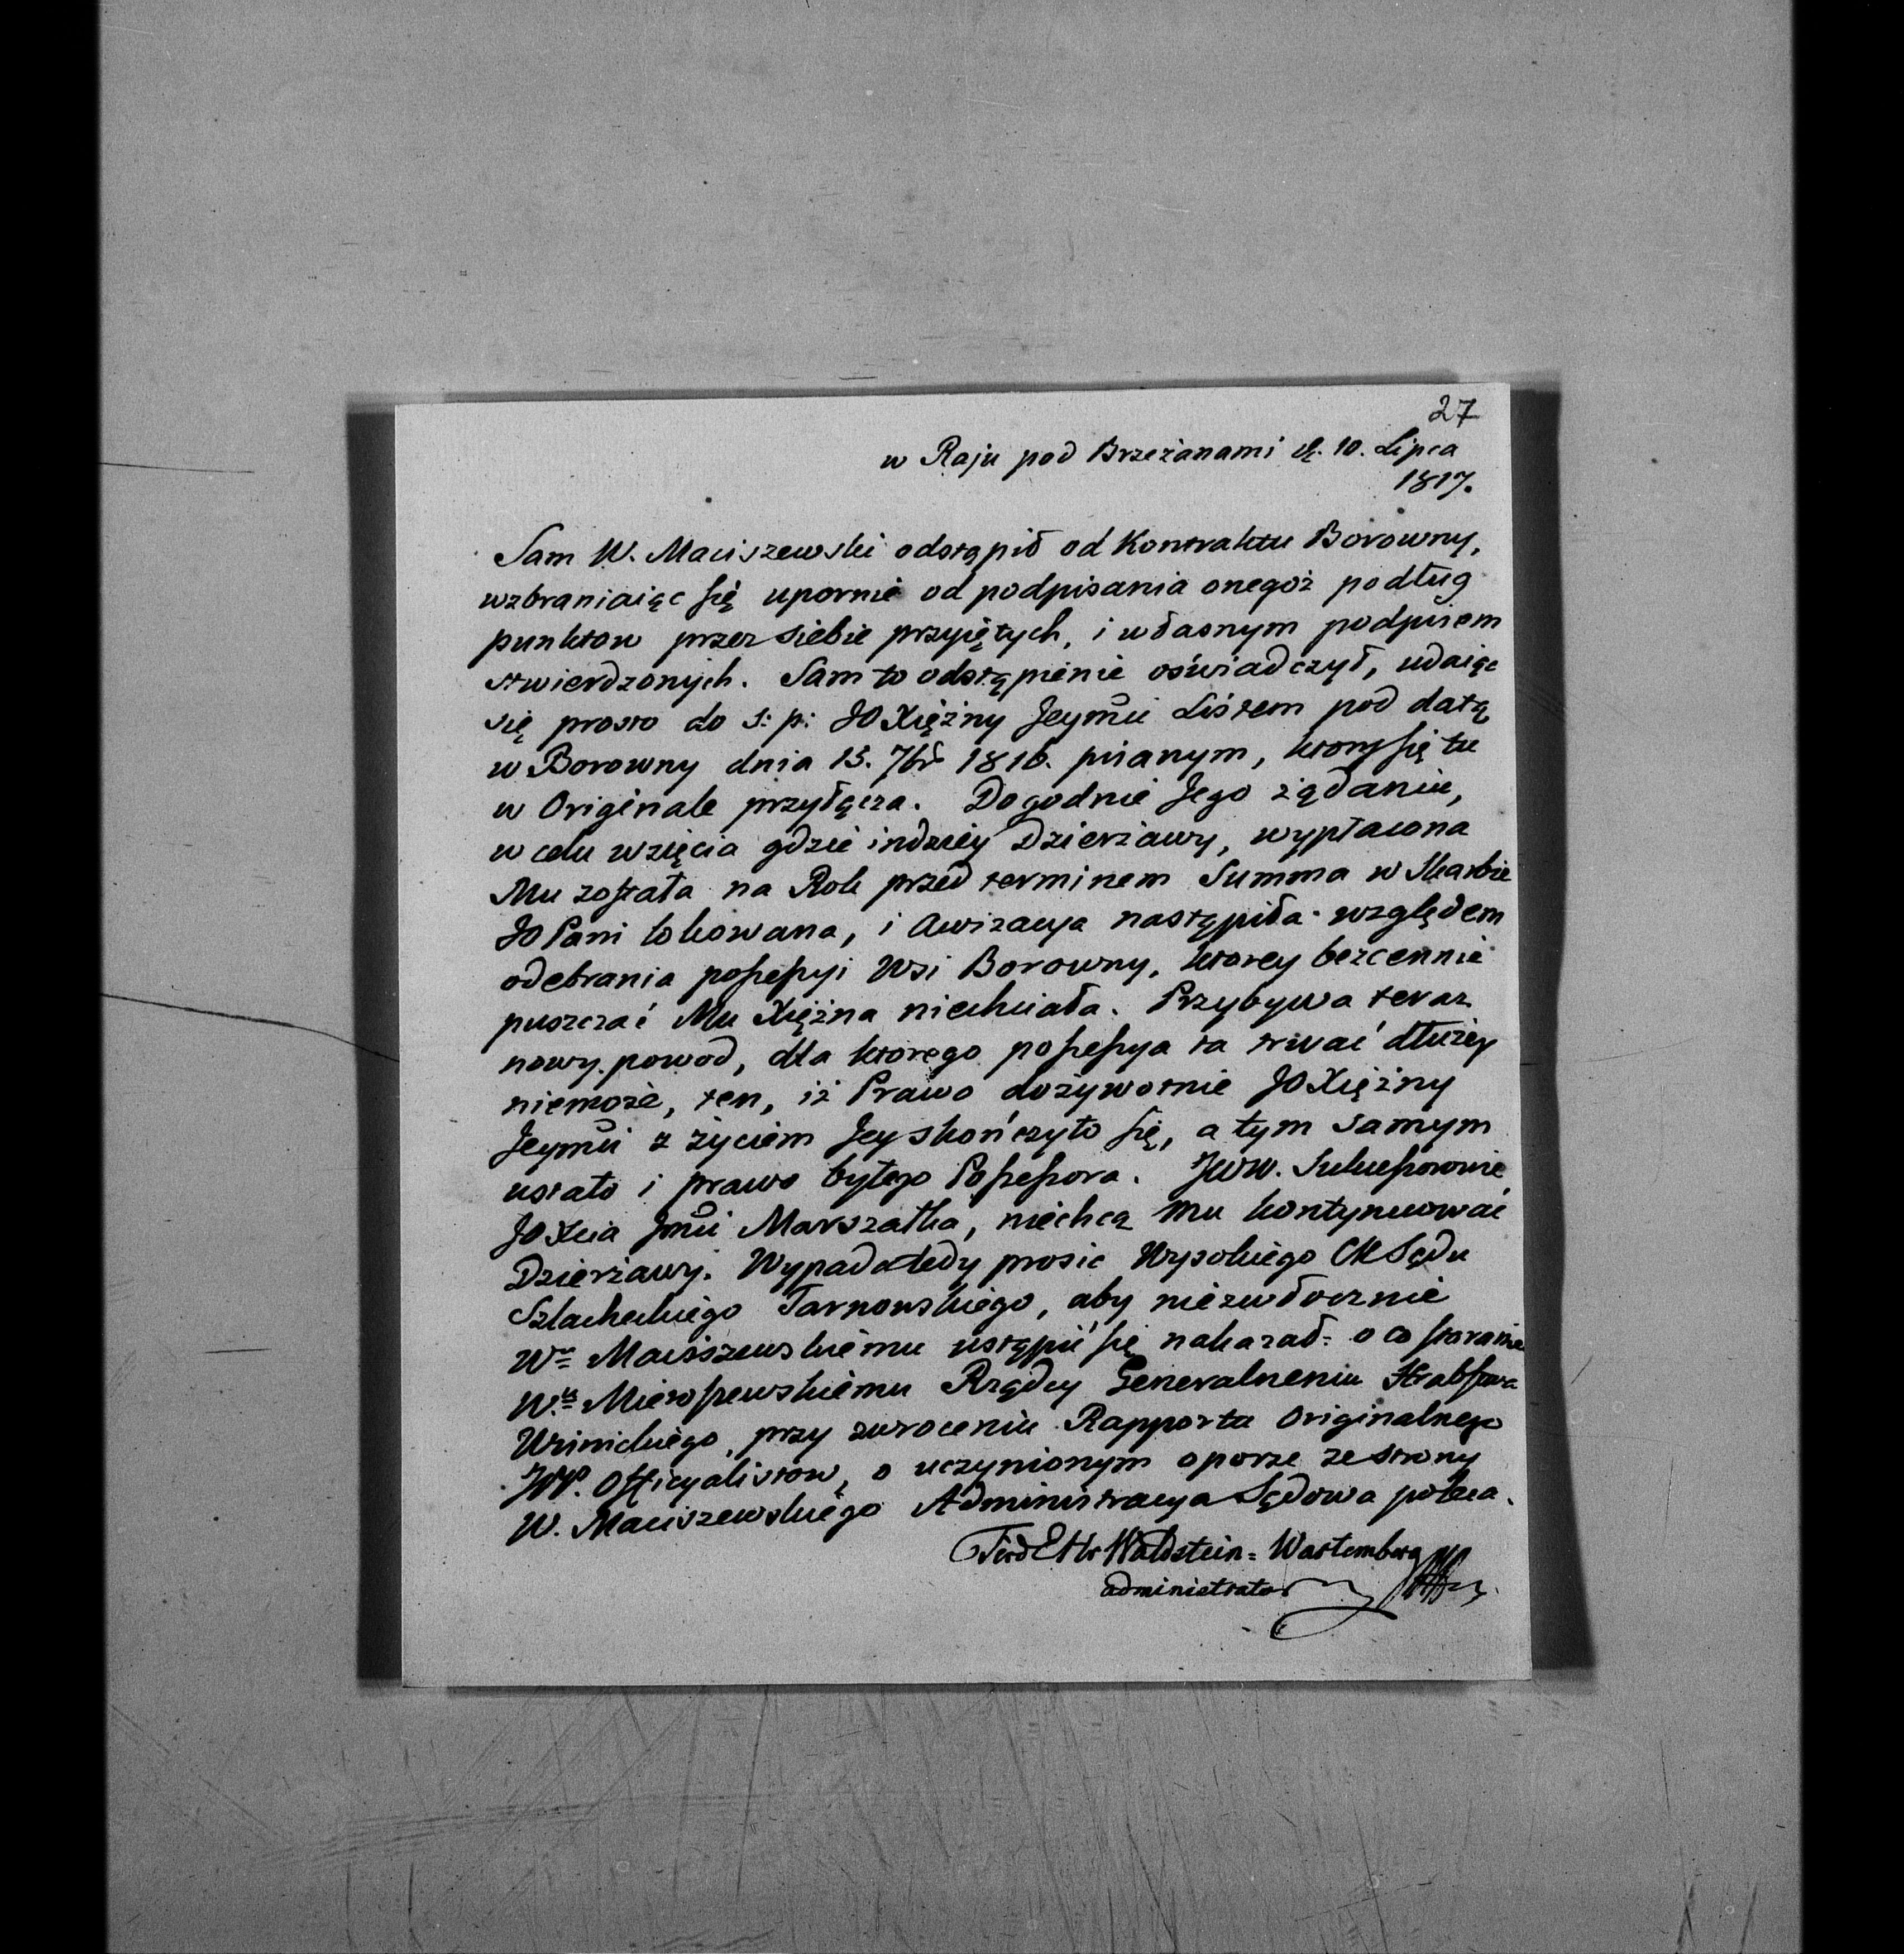 27
w Raju pod Brzeżanami d. 10. Lipca
1817.
Sam W. Maciszewski odstąpił od Kontraktu Borowny,
wzbraniaiąc się upornie od podpisania onegoż podług
punktow przez siebie przyiętych, i własnym podpisem
stwierdzonych. Sam to odstąpienie oświadczył, udaiąc
się prosto do s: p: JO Xiężny Jeymći Listem pod datą
w Borowny dnia 13. 7br 1816. pisanym, ktory się tu
w Originale przyłącza. Dogodnie Jego żądaniu,
w celu wzięcia gdzie indziey Dzierżawy, wypłacona
Mu została na Rok przed terminem Summa w Skarbie
JO Pani lokowana, i Awizacya nastąpiła względem
odebrania possessyi Wsi Borowny, ktorey bezcennie
puszczać Mu Xiężna niechciała. Przybywa teraz
nowy powod, dla ktorego possessya ta trwać dłużey
niemoże, ten, iż Prawo dożywotnie JO Xiężny
Jeymći z życiem Jey skończyło się, a tym samym
ustało i prawo byłego Possessora. JWW. Sukcessorowie
JO Xcia Jmći Marszałka, niechcą mu kontynuować
Dzierżawy. Wypada tedy prosic Wysokiego CK Sądu
Szlacheckiego Tarnowskiego, aby niezwłocznie
Wu Maciszewskiemu ustąpić się nakazał: o co staranie
Wu Mieroszewskiemu Rządcy Generalnemu Hrabstwa
Wisnickiego, przy zwroceniu Rapportu Originalnego
JPP. Officyalistow, o uczynionym oporze ze strony
W. Maciszewskiego Administracya Sądowa poleca.
Ferd E Hr Waldstein = Wartemberg
administrator